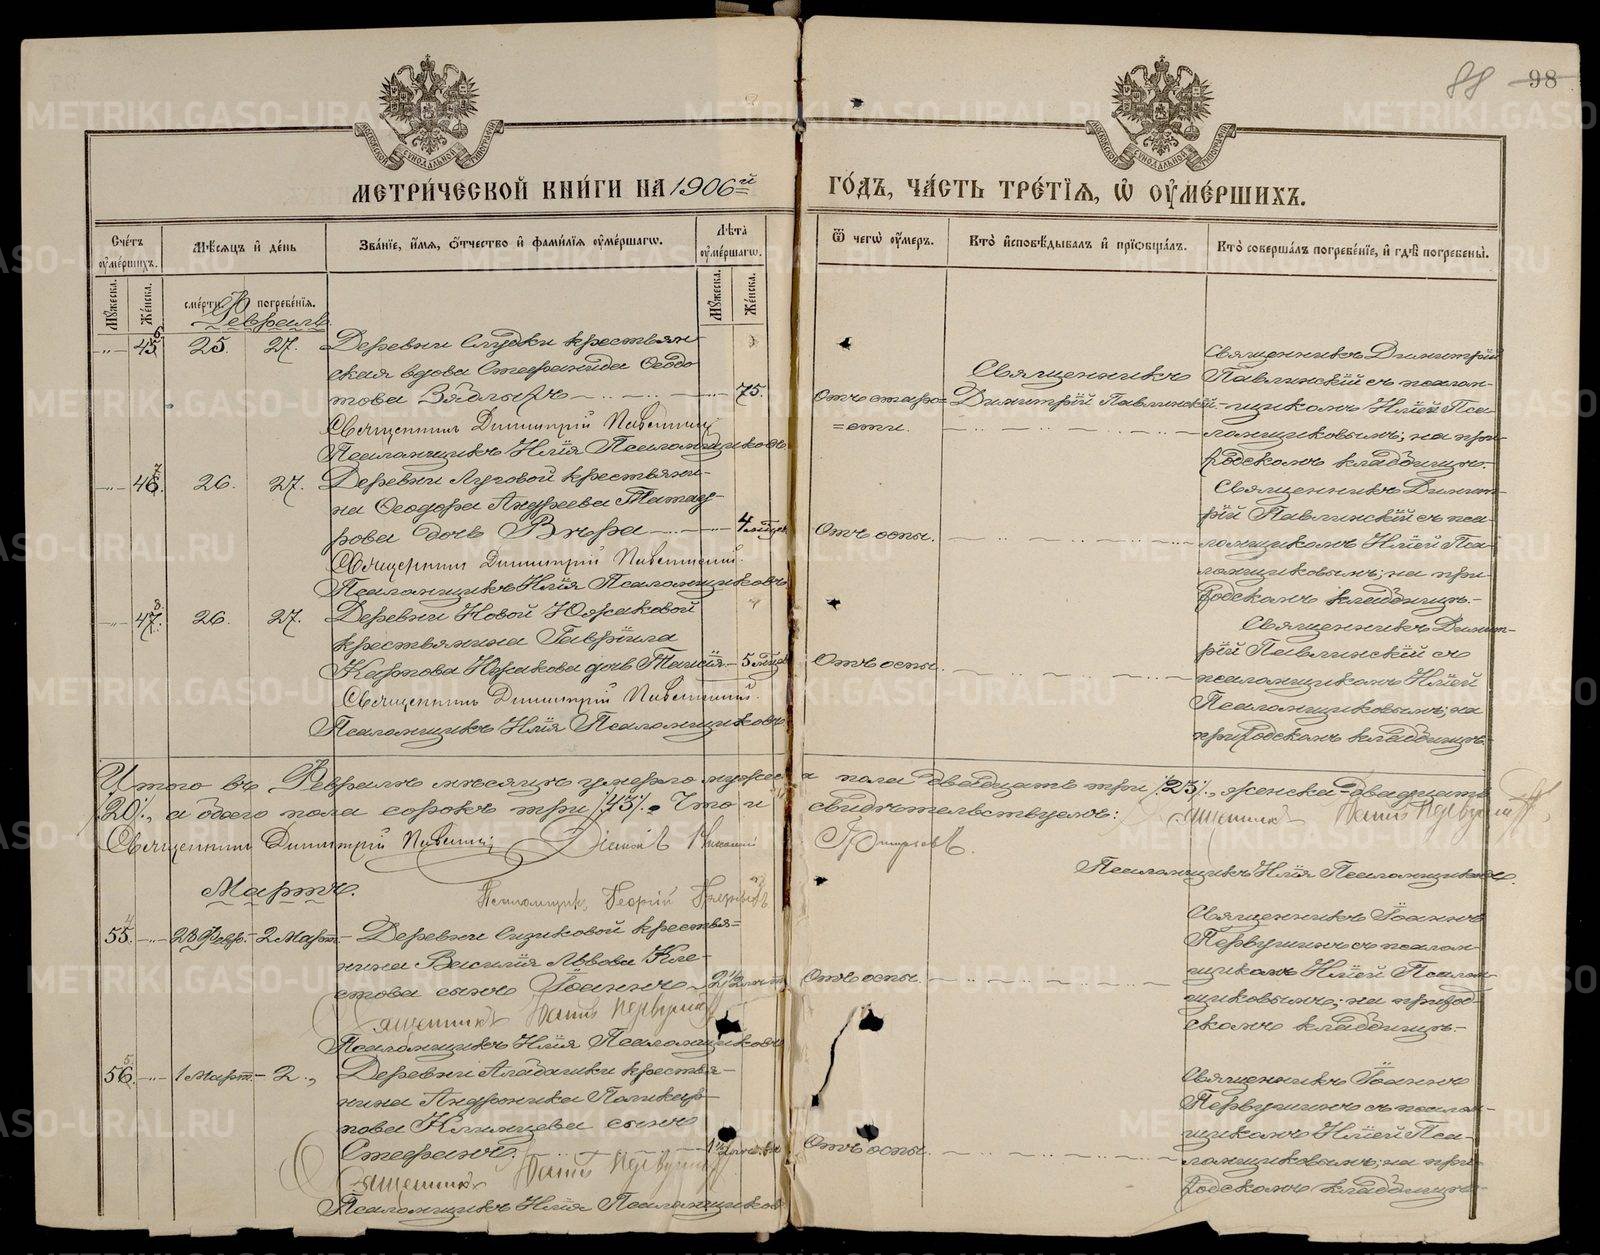 88 98
МЕТРИ́ЧЕСКОЙ КНИ́ГИ НА 1906й ГО́ДЪ, ЧА́СТЬ ТРЕ́ТІѦ, Ѡ҆ ОУ҆МЕ́РШИХЪ.
МОСКОВСКОЙ СѴНОДАЛЬНОЙ ТИПОГРАФІИ
МОСКОВСКОЙ СѴНОДАЛЬНОЙ ТИПОГРАФІИ
Сче́тъ оу҆ме́ршихъ.
Мѣ́сѧцъ и҆ де́нь
Зва́ніе, и҆́мѧ, ѻ҆́тчество и҆ фами́лїѧ оу҆ме́ршагѡ.
Лѣ́та оу҆ме́ршагѡ.
Ѿ чегѡ̀ оу҆́меръ.
Кто̀ и҆сповѣ́дывалъ и҆ прїѡбща́лъ.
Кто̀ соверша́лъ погребе́нїе, и҆ гдѣ̀ погребены̀.
Мꙋ́жеска. Же́нска.
сме́рти. погребе́нїѧ.
Мꙋ́жеска. Же́нска.
Февраль.
45. 25. 27. Деревни Слудки крестьян-
ская вдова Стефанида Ѳедо
това Вядлыхъ 75.
Священникъ Димитрій Павлинскій
Псаломщикъ Илія Псаломщиковъ
Отъ старо=
=сти.
Священникъ
Димитрій Павлинскій.
Священникъ Димитрій
Павлинскій съ псалом-
щикомъ Иліей Пса
ломщиковымъ; на при-
ходскомъ кладбищѣ.
46. 26. 27. Деревни Луговой крестьяни-
на Ѳеодора Андреева Татау-
рова дочь Вѣра 4 мѣсяц.
Священникъ Димитрій Павлинскій
Псаломщикъ Илія Псаломщиковъ
Отъ оспы.
Священникъ Димит-
рій Павлинскій съ пса-
ломщикомъ Иліей Пса-
ломщиковымъ; на при-
ходскомъ кладбищѣ.
47. 26. 27. Деревни Новой Южаковой
крестьянина Гавріила
Карпова Южакова дочь Таисія 5 мѣсяц
Священникъ Димитрій Павлинскій.
Псаломщикъ Илія Псаломщиковъ
Отъ оспы.
Священникъ Димит-
рій Павлинскій съ
псаломщикомъ Иліей
Псаломщиковымъ; на
приходскомъ кладбищѣ.
Итого въ Февралѣ мѣсяцѣ умерло мужеска пола двадцать три /23/, женска двадцать
/20/, а обоего пола сорокъ три /43/. Что и свидѣтельствуемъ: Священникъ Іоаннъ Первушинъ
Священникъ Димитрій Павлинскій Діаконъ Николай
Псаломщикъ Илія Псаломщиковъ.
Мартъ. Псаломщикъ Георгій
55. 28 Февр. 2 Март. Деревни Сизиковой крестья=
нина Василія Львова Кле-
стова сынъ Іоаннъ 2 1/2 лѣт
Священникъ Іоаннъ Первушинъ
Псаломщикъ Илія Псаломщиковъ
Отъ оспы.
Священникъ Іоаннъ
Первушинъ съ псалом
щикомъ Иліей Псалом-
щиковымъ; на приход-
скомъ кладбищѣ.
56. 1 Март. 2. Деревни Алабашки крестья-
нина Андроника Поликар-
пова Климцева сынъ
Стефанъ.
Священникъ Іоаннъ Первушинъ
Псаломщикъ Илія Псаломщиков
Отъ оспы.
Священникъ Іоаннъ
Первушинъ съ псалом-
щикомъ Иліей Пса-
ломщиковымъ; на при-
ходскомъ кладбищѣ.
METRIKI.GASO-URAL.RU